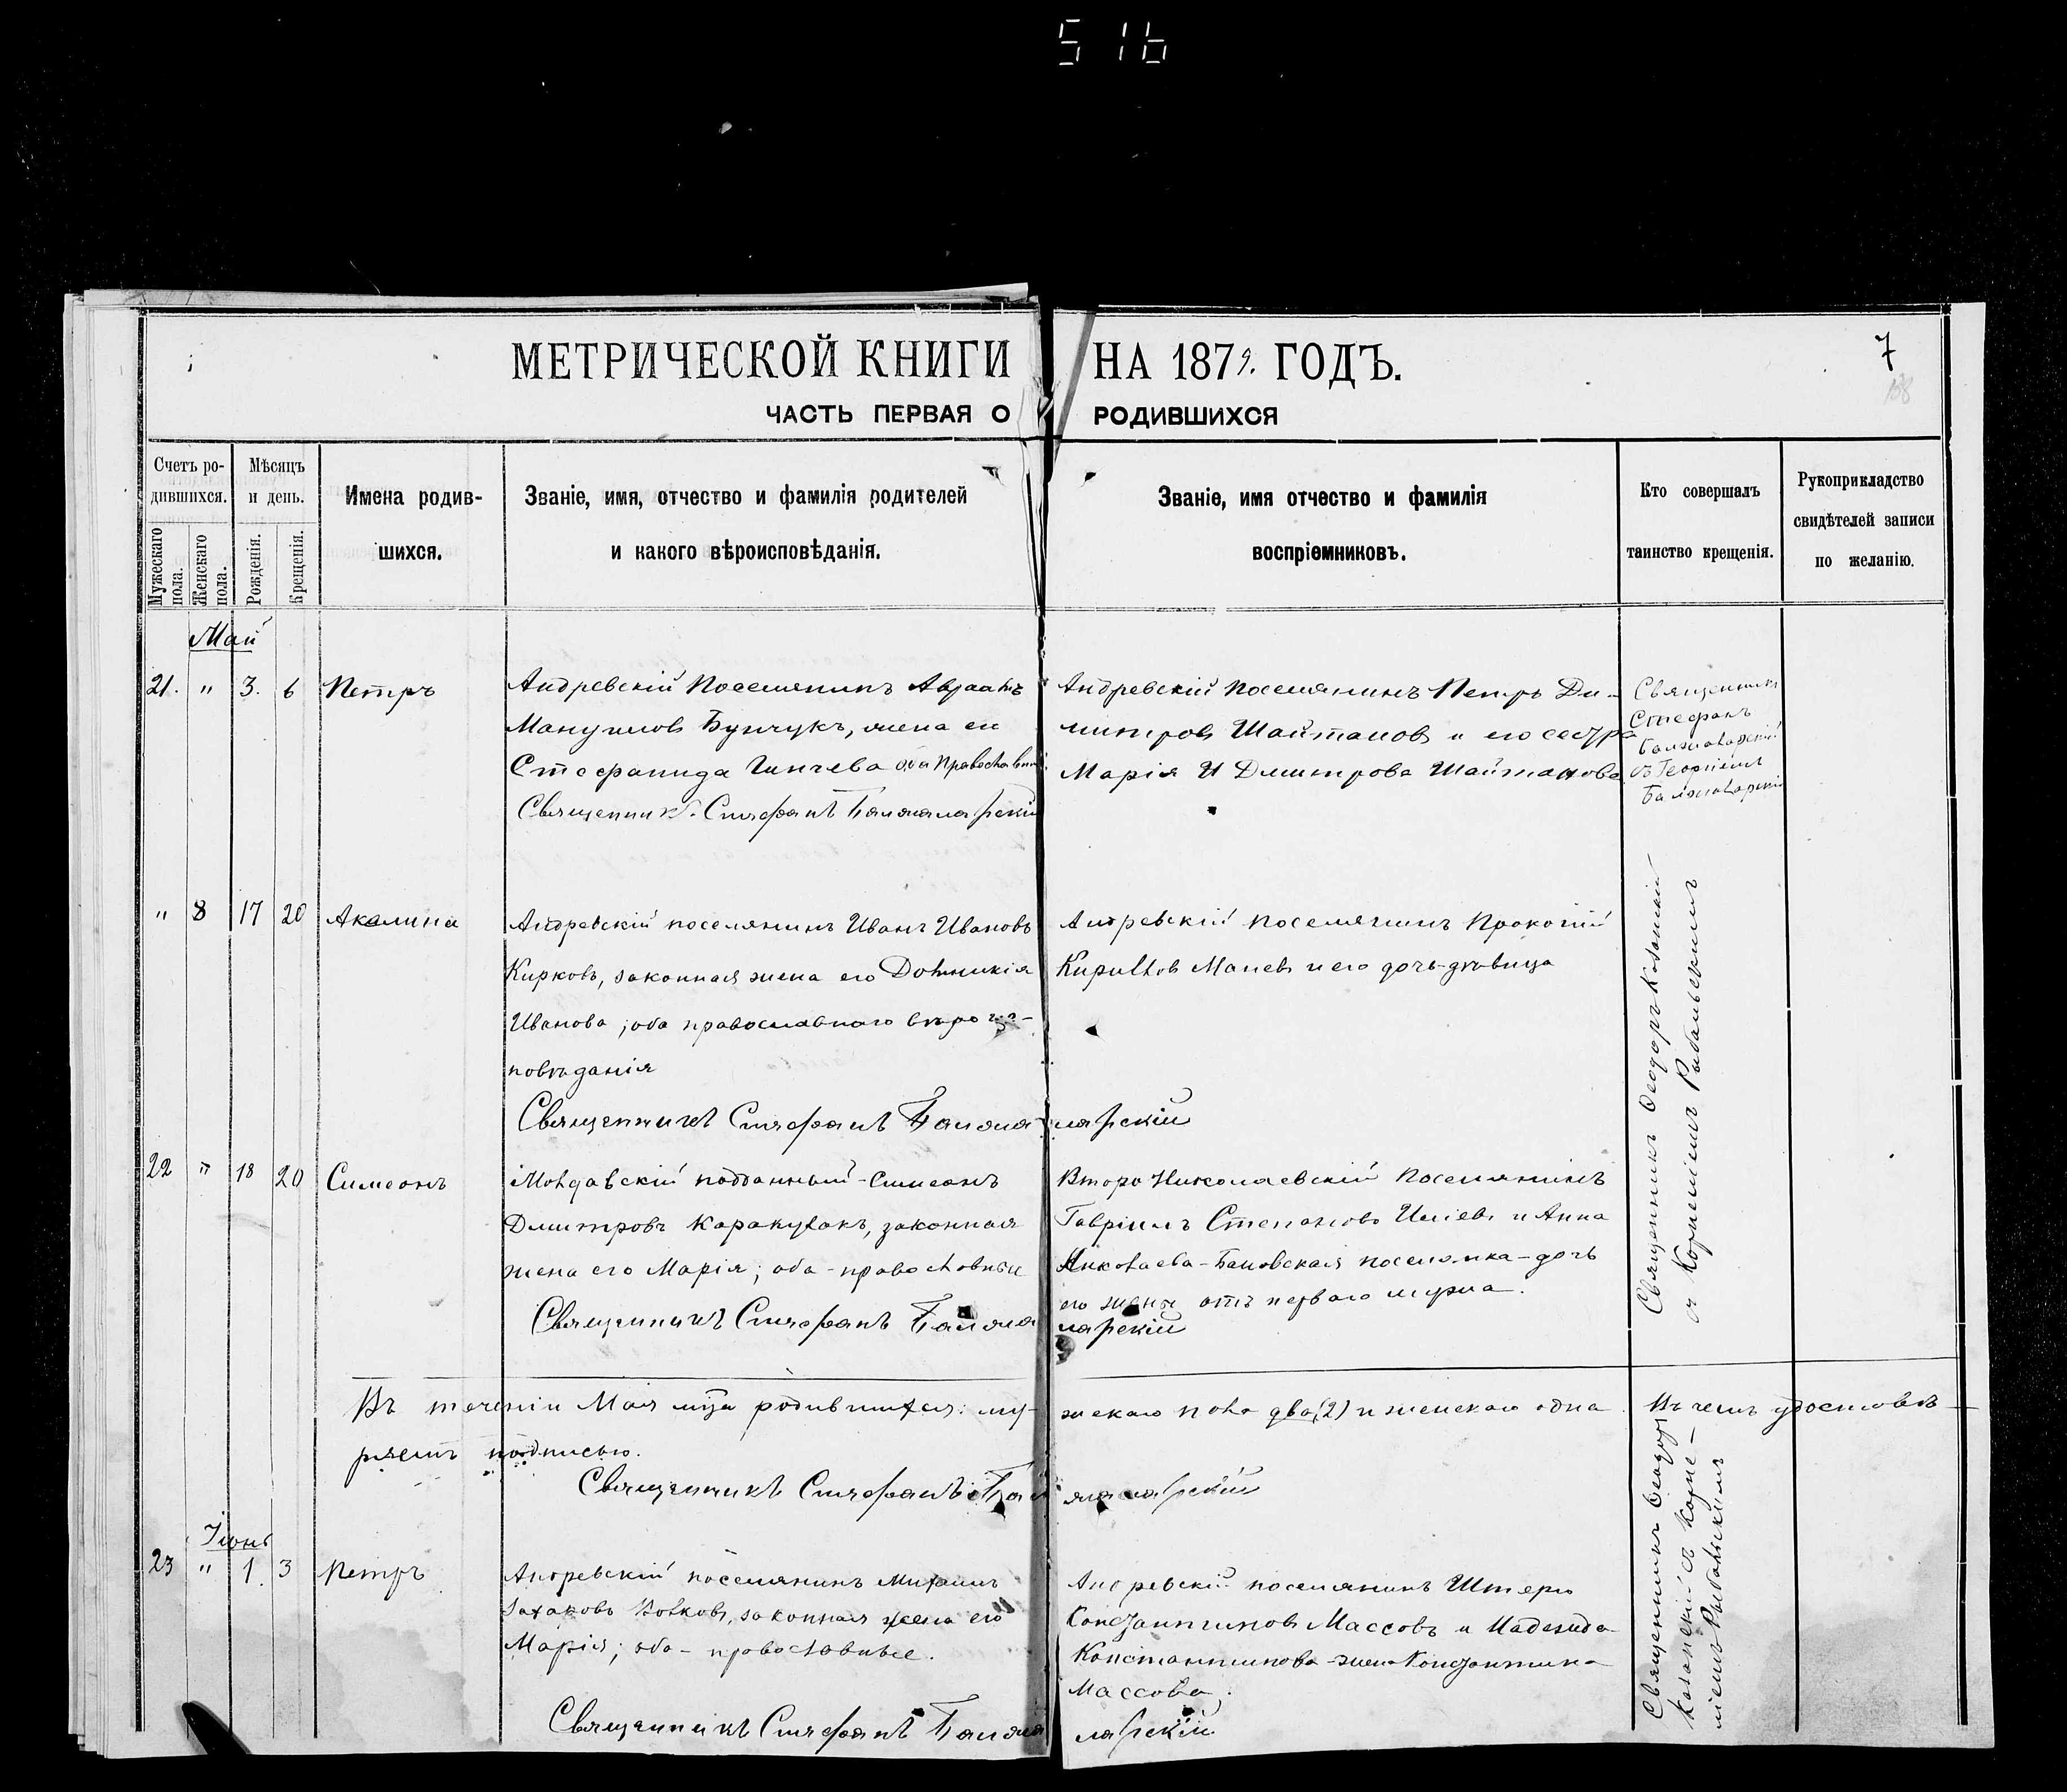 516
МЕТРИЧЕСКОЙ КНИГИ НА 1879. ГОДЪ.
7
138
ЧАСТЬ ПЕРВАЯ О РОДИВШИХСЯ
Счетъ ро-
дившихся.
Мужескаго
пола.
Женскаго
пола.
Мѣсяцъ
и день.
Рожденія.
Крещенія.
Имена родив-
шихся.
Званіе, имя, отчество и фамилія родителей
и какого вѣроисповѣданія.
Званіе, имя отчество и фамилія
воспріемниковъ.
Кто совершалъ
таинство крещенія.
Рукоприкладство
свидѣтелей записи
по желанію.
Май
21. " 3. 6 Петръ
Андревскій Поселянинъ Авраамъ
Мануилов Бунчукъ, жена ег
Стефанида Гинчева оба Православны
Священникъ Стефанъ Балжаларскій
Андревскій поселянинъ Петръ Ди-
митровъ Шайтановъ и его сестра
Марія Дмитрова Шайтанова
Священникъ
Стефанъ
Балжаларскій
съ Георгіемъ
Балжаларскимъ
" 8 17 20 Акалина
Андревскій поселянинъ Иванъ Ивановъ
Кирковъ, законная жена его Домникія
Иванова; оба православнаго вѣроис-
повѣданія
Священникъ Стефанъ Балжаларскій
Андревскій поселянинъ Прокопій
Кирилов Манев и его дочь-дѣвица
Священникъ Ѳеодоръ Казанскій
съ Корнеліемъ Рыбальскимъ
22 " 18 20 Симеонъ
Молдавскій подданный-Симеонъ
Дмитровъ Каракулакъ, законная
жена его Марія; оба-православные
Священникъ Стефанъ Балжаларскій
Второ Николаевскій Поселянинъ
Гавріилъ Степановъ Иліевъ и Анна
Николаева-Бановская поселянка-дочь
его жены отъ перваго мужа.
Въ теченіи Мая мца родившихся: му-жскаго пола два (2) и женскаго одна Въ чемъ удостовѣ-
ряемъ подписью.
Священникъ Стефанъ Балжаларскій
Іюнь
23 " 1. 3 Петръ
Андревскій поселянинъ Михаилъ
Захаровъ Волковъ, законная жена его
Марія; оба-православные.
Священникъ Стефанъ Балжаларскій
Андревскій поселянинъ Штерю
Константинов Массовъ и Надежда
Константинова-жена Константина
Массова.
Священникъ Ѳеодоръ
Казанскій съ Корне-
ліемъ Рыбальскимъ